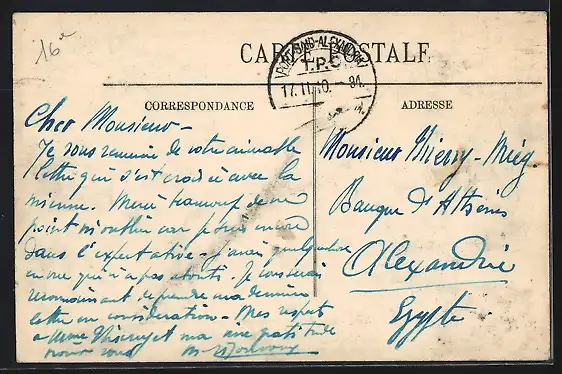 16
CARTE POSTALE
PORT-SAID-ALEXANDRIE
T.P.O.
17.II.10. 84.
CORRESPONDANCE
ADRESSE
Cher Monsieur -
Je vous remercie de votre aimable
lettre qui s'est croisée avec la
mienne. Merci beaucoup de ne
point m'oublier car je suis encore
dans l'expectative - J'avais quelque chose
en vue qui n'a pas abouti. Je
reconnaissant de prendre ma dernière
lettre en considération - Mes respects
à Mme Thierry et ma vive gratitude
pour vous
Monsieur Thierry-Mieg.
Banque d'Athènes
Alexandrie
Egypte